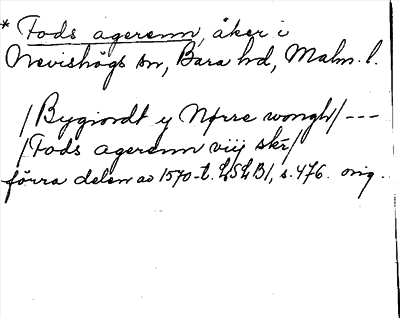 * Fods agerenn, åker i
Nevishögs sn, Bara hd, Malm. l.
/Bygiordt y Nørre wongh/ ---
/Fods agerenn viij skr/
förra delen av 1570-t. LSLB1, s. 476. orig.